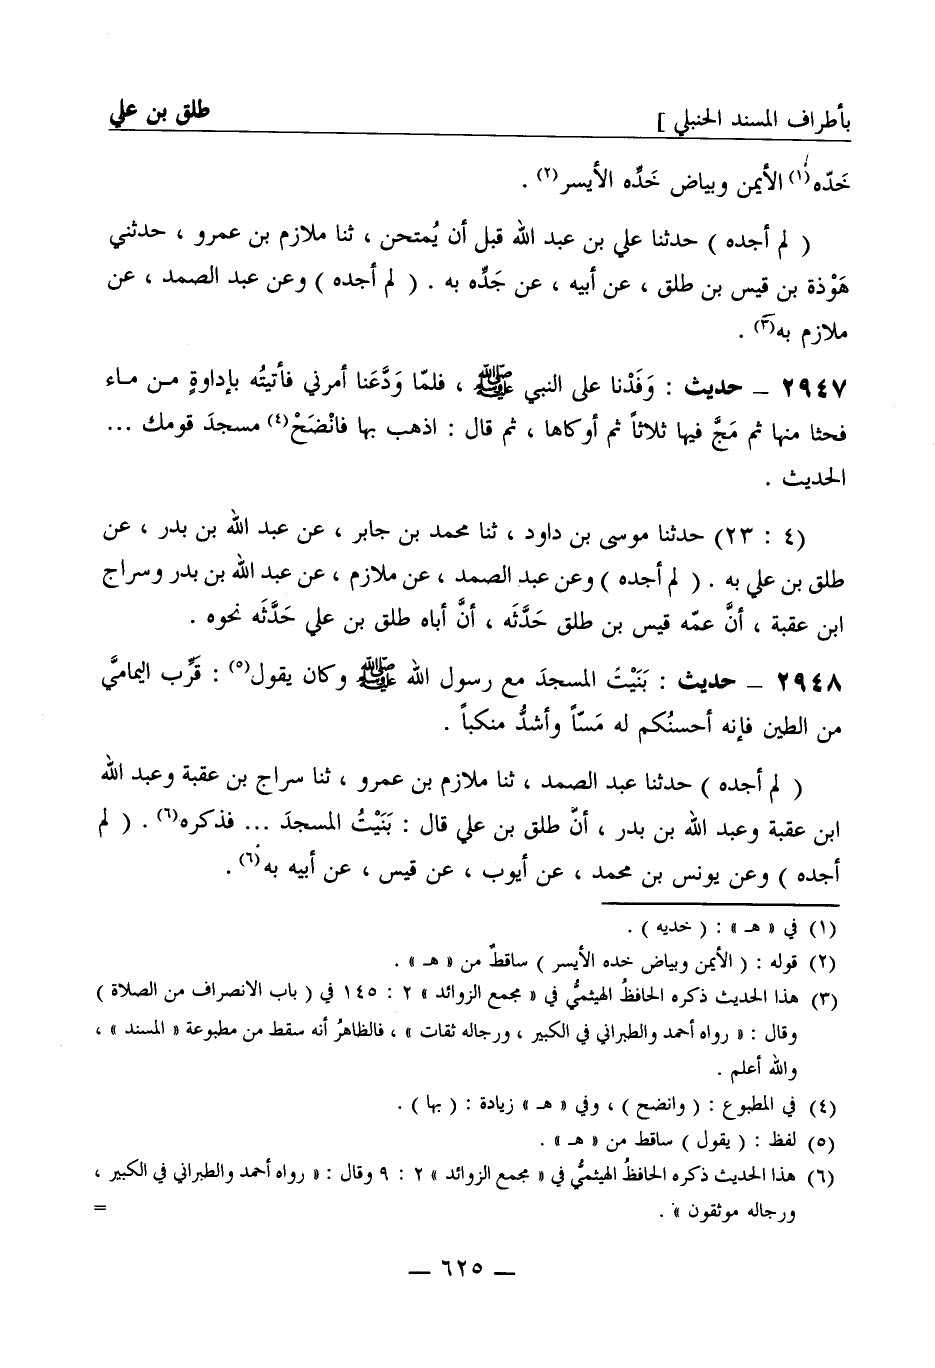 بأطراف المسند الحنبلي ] طلق بن علي
خَدّه(١) الأيمن وبياض خَدِّه الأيسر(٢) .
( لم أجده ) حدثنا علي بن عبد الله قبل أن يُمتحن ، ثنا ملازم بن عمرو ، حدثني
هَوْذة بن قيس بن طلق ، عن أبيه ، عن جَدِّه به . ( لم أجده ) وعن عبد الصمد ، عن
ملازم به(٣) .
٢٩٤٧ ـ حديث : وَفَدْنا على النبي ﷺ ، فلمّا وَدَّعَنا أمرني فأتيتُه بإداوةٍ من ماء
فحثا منها ثم مَجَّ فيها ثلاثاً ثم أوكاها ، ثم قال : اذهب بها فانْضَحْ(٤) مسجدَ قومك ...
الحديث .
(٤ : ٢٣) حدثنا موسى بن داود ، ثنا محمد بن جابر ، عن عبد الله بن بدر ، عن
طلق بن علي به . ( لم أجده ) وعن عبد الصمد ، عن ملازم ، عن عبد الله بن بدر وسراج
ابن عقبة ، أنَّ عمّه قيس بن طلق حَدَّثَه ، أنَّ أباه طلق بن علي حَدَّثَه نحوه .
٢٩٤٨ ـ حديث : بَنَيْتُ المسجدَ مع رسول الله ﷺ وكان يقول(٥) : قَرِّب اليماميَّ
من الطين فإنه أحسنُكم له مَسّاً وأشدُّ منكباً .
( لم أجده ) حدثنا عبد الصمد ، ثنا ملازم بن عمرو ، ثنا سراج بن عقبة وعبد الله
ابن عقبة وعبد الله بن بدر ، أنّ طلق بن علي قال : بَنَيْتُ المسجدَ ... فذكره(٦) . ( لم
أجده ) وعن يونس بن محمد ، عن أيوب ، عن قيس ، عن أبيه به(٦) .
(١) في « هـ » : ( خديه ) .
(٢) قوله : ( الأيمن وبياض خده الأيسر ) ساقطٌ من « هـ » .
(٣) هذا الحديث ذكره الحافظُ الهيثميُّ في « مجمع الزوائد » ٢ : ١٤٥ في ( باب الانصراف من الصلاة )
وقال : « رواه أحمد والطبراني في الكبير ، ورجاله ثقات » ، فالظاهرُ أنه سقط من مطبوعة « المسند » ،
والله أعلم .
(٤) في المطبوع : ( وانضح ) ، وفي « هـ » زيادة : ( بها ) .
(٥) لفظ : ( يقول ) ساقط من « هـ » .
(٦) هذا الحديث ذكره الحافظُ الهيثميُّ في « مجمع الزوائد » ٢ : ٩ وقال : « رواه أحمد والطبراني في الكبير ،
ورجاله موثقون » . =
ـ ٦٢٥ ـ